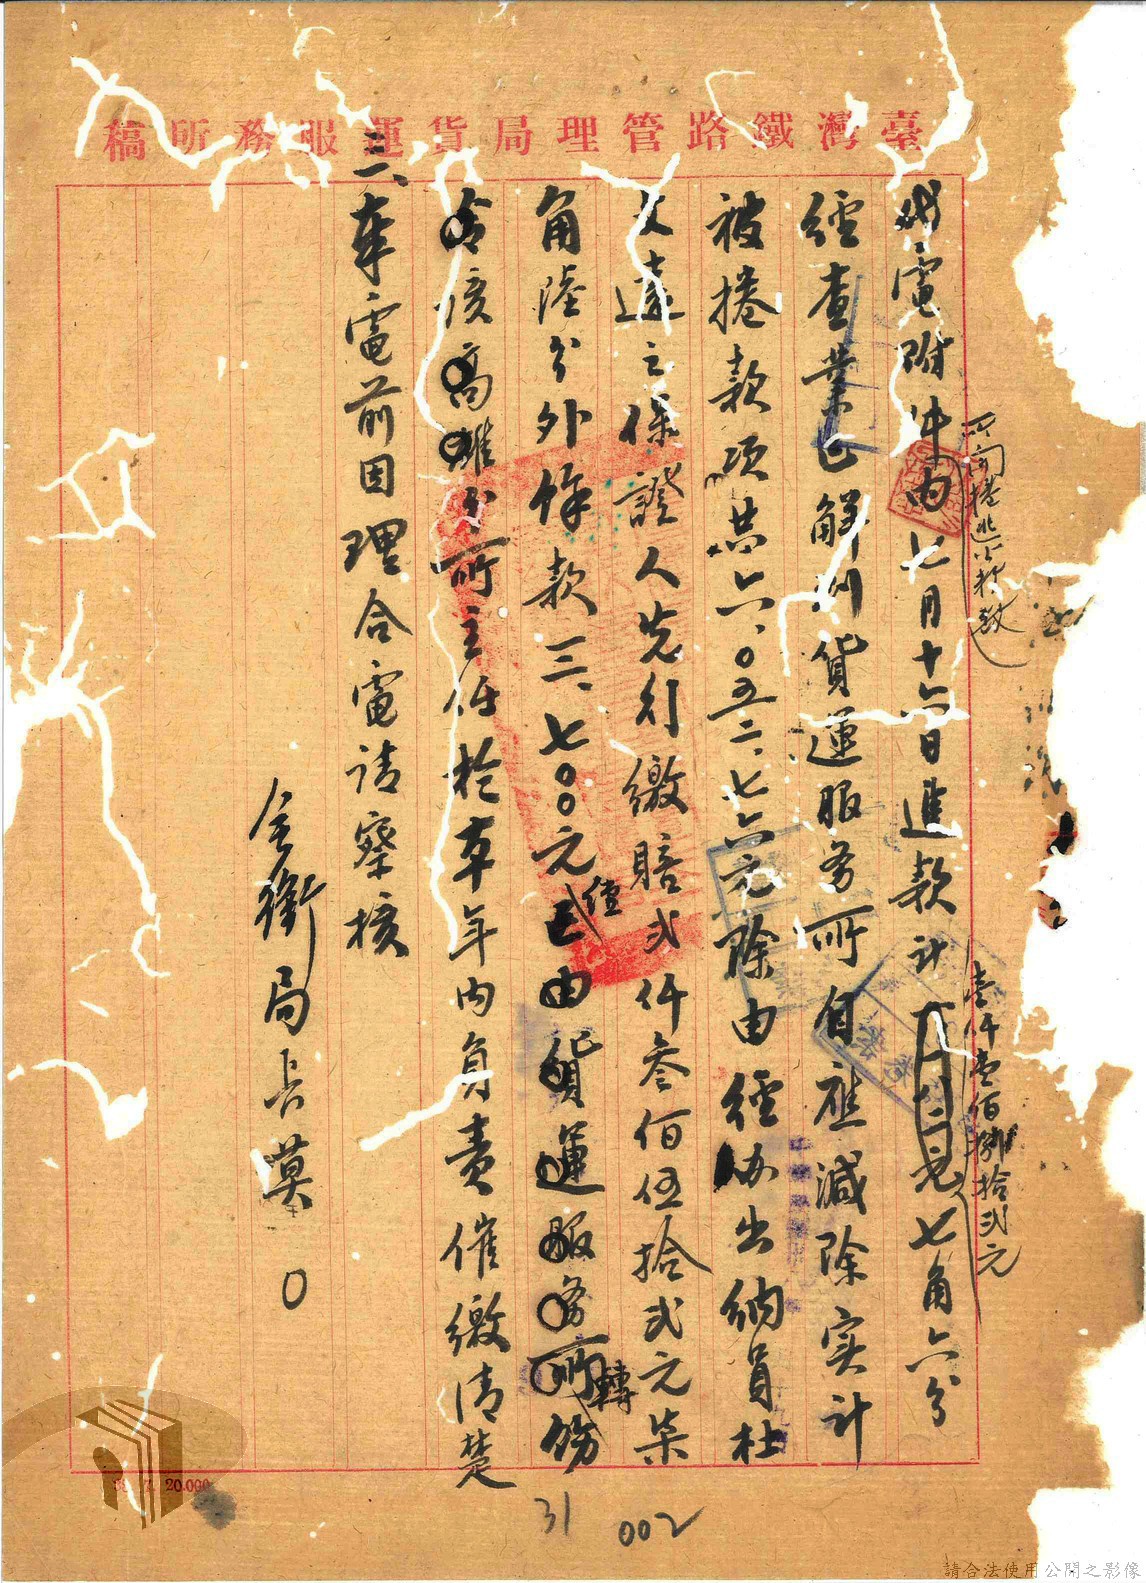 臺灣鐵路管理局貨運服務所稿
代電附件內七月十六日進款計
七角六分
所開捲逃公款數
壹仟壹佰捌拾弍元
經查業已解到貨運服务所自應減除实计
被捲款項共六、0五二、七六元除由經办出纳員杜
文遠之保證人先行繳賠弍仟叄佰伍拾弍元柒
角陸分外餘款三、七00元已由貨運服务所飭
經
轉
令該高雄分所主任於本年內負责催繳清楚
三、奉電前因理合電请察核
全銜局長莫〇
20.000
31
002
請合法使用公開之影像